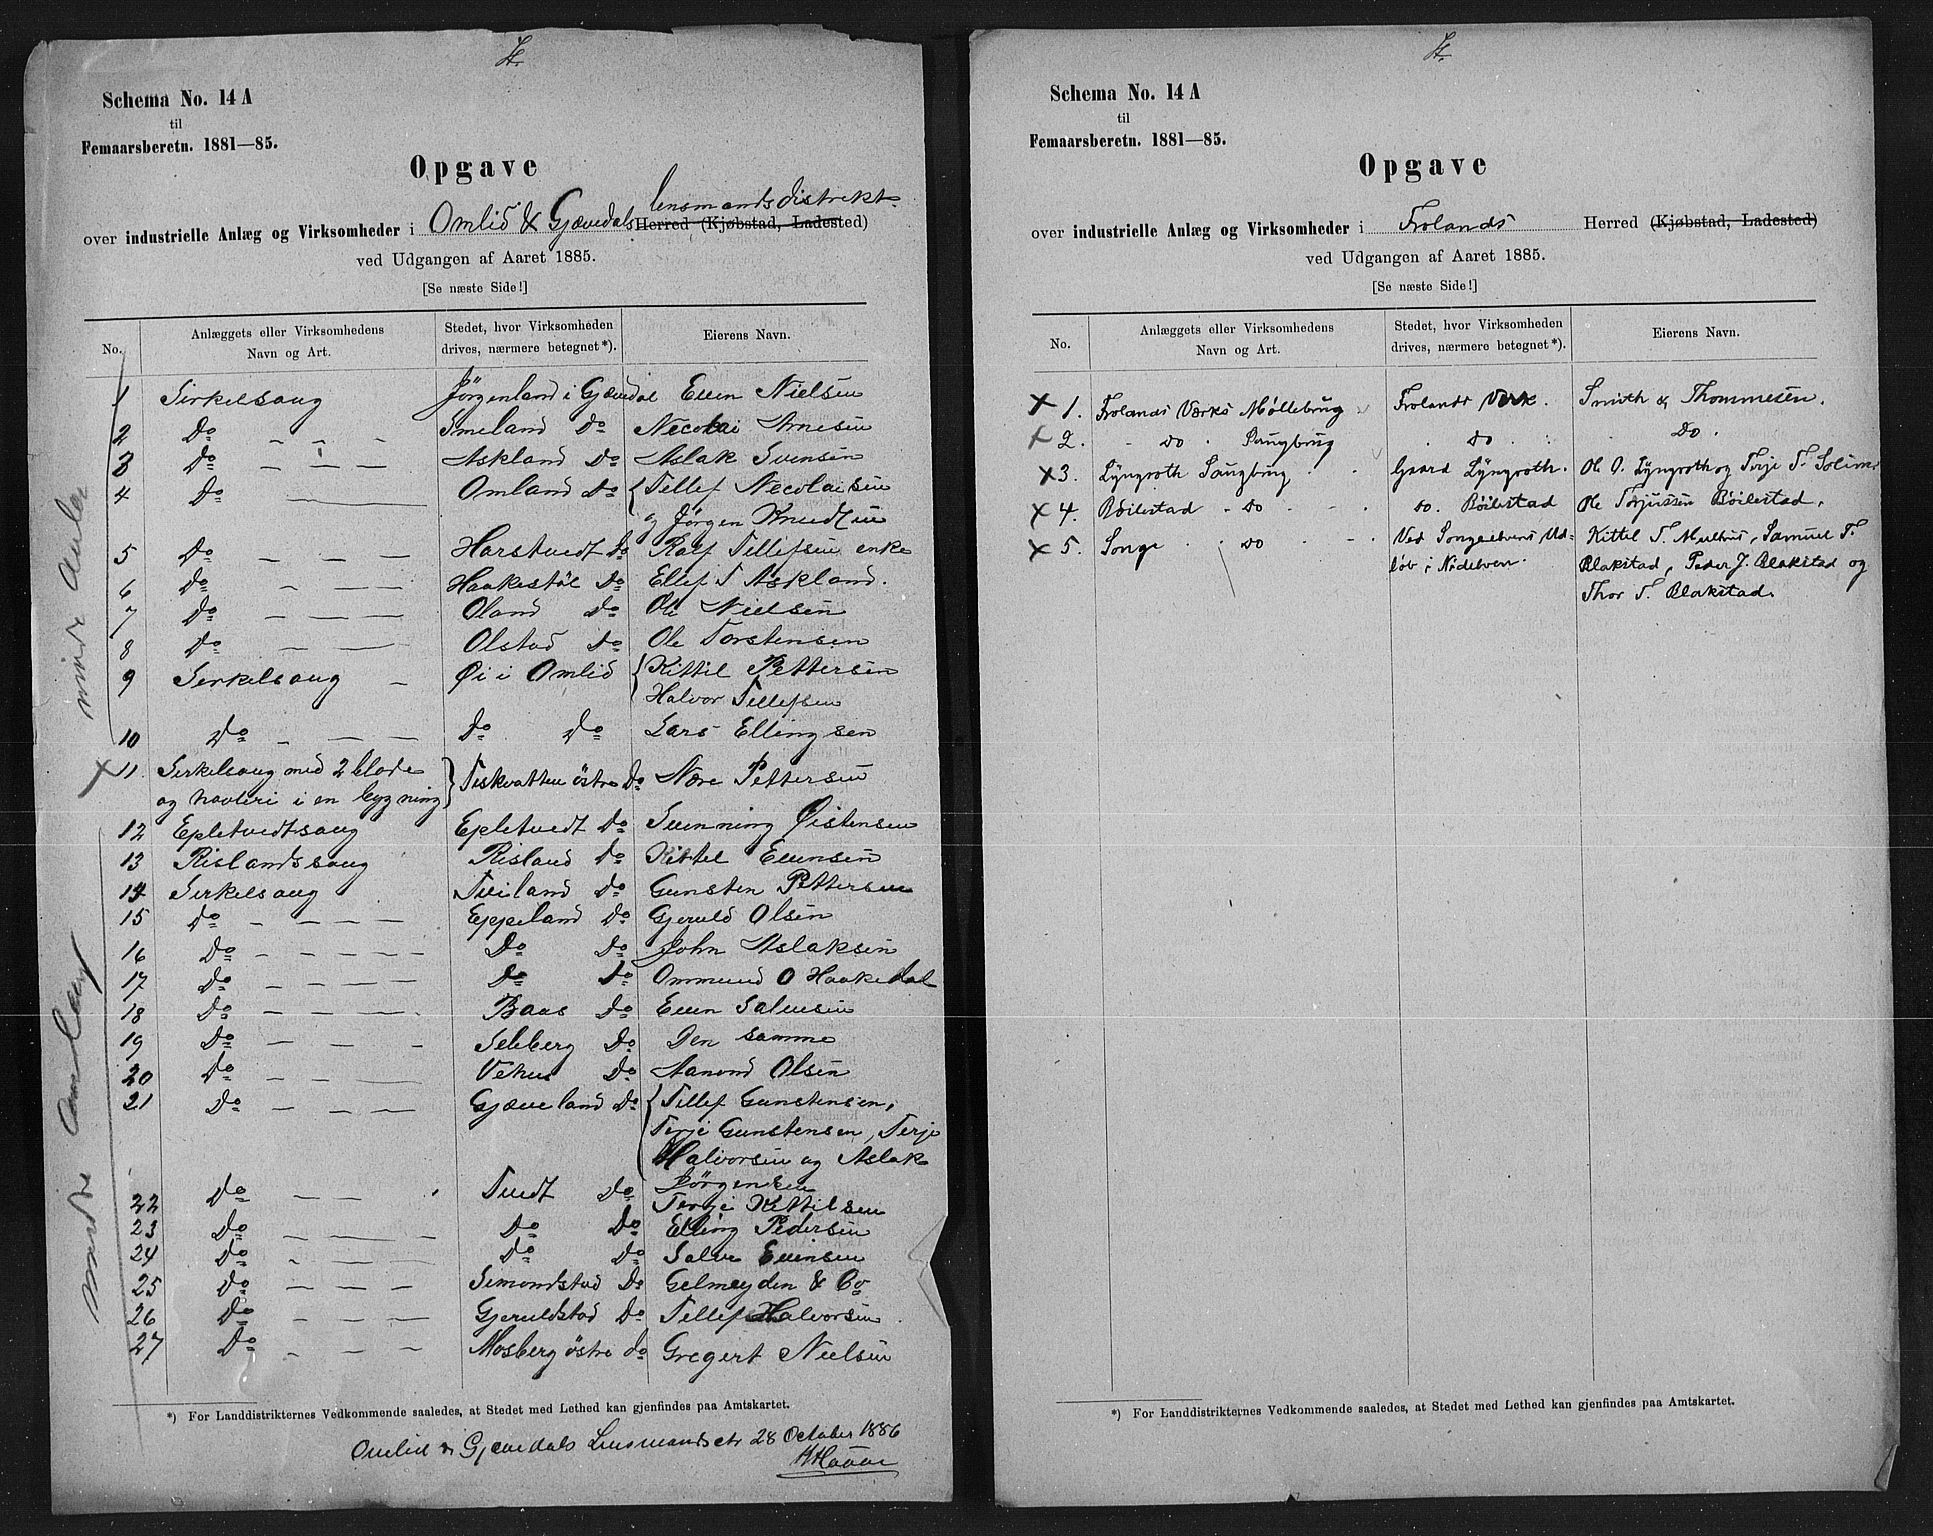 Schema No. 14 A
til
Femaarsberetn. 1881—85.
Opgave
over industrielle Anlæg og Virksomheder i Omlid & Gjævedals lensmandsdistrikt Herred (Kjøbstad, Ladested)
ved Udgangen af Aaret 1885.
[Se næste Side!]
No. Anlæggets eller Virksomhedens Navn og Art. Stedet, hvor Virksomheden drives, nærmere betegnet*). Eierens Navn.
1 Sirkelsaug Jörgenland i Gjævedal Even Nielsen
2 Do Smeland Do Necolai Arnesen
3 Do Askland Do Aslak Svensen
4 Do Omland Do Tellef Necolaisen
og Jörgen Knudsen
5 Do Harstvedt Do Rolf Tellefsen enke
6 Do Haakestöl Do Ellef T Askland.
7 Do Oland Do Ole Nielsen
8 Do Olstad Do Ole Torstensen
9 Serkelsaug Øi i Omlid Kittil Pettersen
Halvor Tellefsen
10 Do Do Do Lars Ellingsen
11. Serkelsaug med 2 blade Teskvatten östre Do Nære Pettersen
og hövleri i en bygning
12 Epletvedtsaug Epletvedt Do Svenning Øistensen
13 Rislandssaug Risland Do Kittel Evensen
14 Serkelsaug Tveiland Do Gunsten Pettersen
15 Do Eppeland Do Gjeruld Olsen
16 Do Do Do John Aslaksen
17 Do Do Do Ommund O Haakedal
18 Do Baas Do Even Salvesen
19 Do Seleberg Do Den samme
20 Do Vehus Do Aanond Olsen
21 Do Gjæveland Do Tellef Gunstensen,
Terje Gunstensen, Terje
Halvorsen og Aslak
Jörgensen
22 Do Tvedt Do Terje Kittilsen
23 Do Do Do Elling Pedersen
24 Do Do Do Salve Evensen
25 Do Simonstad Do Gelmeyden & Co
26 Do Gjeruldstad Do Tellef Halvorsen
27 Do Mosberg östre Do Gregert Nielsen
mindre Anlæg
*) For Landdistrikternes Vedkommende saaledes, at Stedet med Lethed kan gjenfindes paa Amtskartet.
Omlid & Gjævedals Lensmandsctr 28 October 1886
Schema No. 14 A
til
Femaarsberetn. 1881—85.
Opgave
over industrielle Anlæg og Virksomheder i Frolands Herred (Kjøbstad, Ladested)
ved Udgangen af Aaret 1885.
[Se næste Side!]
No. Anlæggets eller Virksomhedens Navn og Art. Stedet, hvor Virksomheden drives, nærmere betegnet*). Eierens Navn.
x 1. Frolands Værks Möllebrug Frolands Værk. Smith & Thommesen.
x 2. do Saugbrug do do.
x 3. Lyngroth Saugbrug Gaard Lyngroth. Ole O. Lyngroth og Terje T.
x 4. Böilestad do do. Böilestad Ole Terjussen Böilestad.
x 5. Songe do Ved Songeelvens Ud- Kittel T. Samuel T.
löb i Nidelven. Blakstad, Peder J. Blakstad og
Thor T. Blakstad.
*) For Landdistrikternes Vedkommende saaledes, at Stedet med Lethed kan gjenfindes paa Amtskartet.